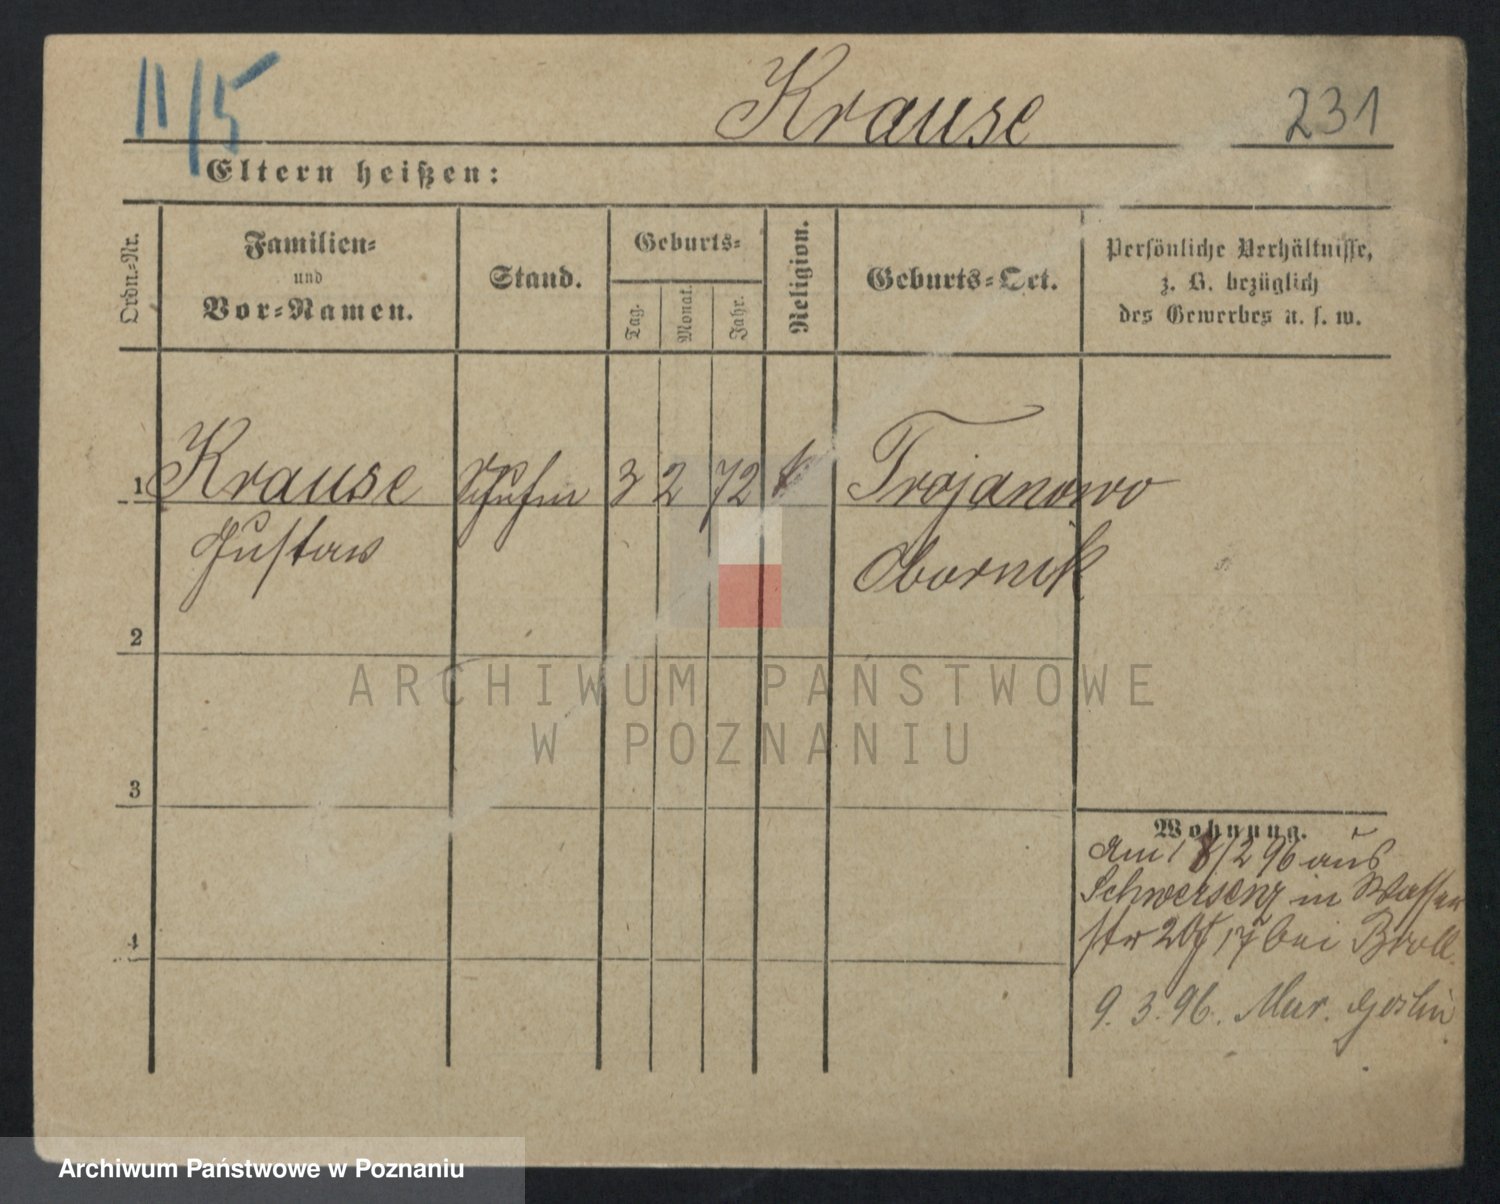 11/5
Krause
231
Eltern heißen:
Ordn.=Nr.
Familien=
und
Vor=Namen.
Stand.
Geburts=
Tag.
Monat.
Jahr.
Religion.
Geburts=Ort.
Persönliche Verhältnisse,
z. B. bezüglich
des Gewerbes u. s. w.
1 Krause Schuhm 3 2 72 k Trojanowo
Gustav Obornik
2
3
4
Wohnung.
am 18/2 96 aus
Schwersenz in Wasser
str 20 17 bei Broll
9. 3. 96. Mur. Goslin
ARCHIWUM PAŃSTWOWE
W POZNANIU
Archiwum Państwowe w Poznaniu